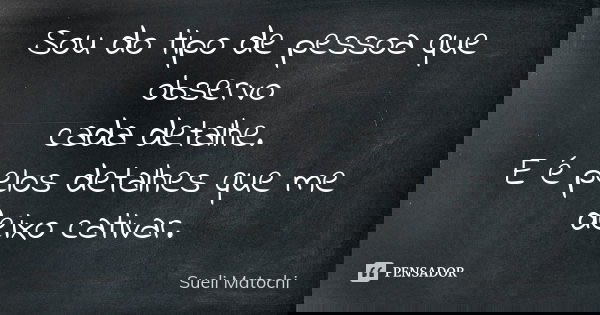 Sou do tipo de pessoa que
observo
cada detalhe.
E é pelos detalhes que me
deixo cativar.
Sueli Matochi
PENSADOR